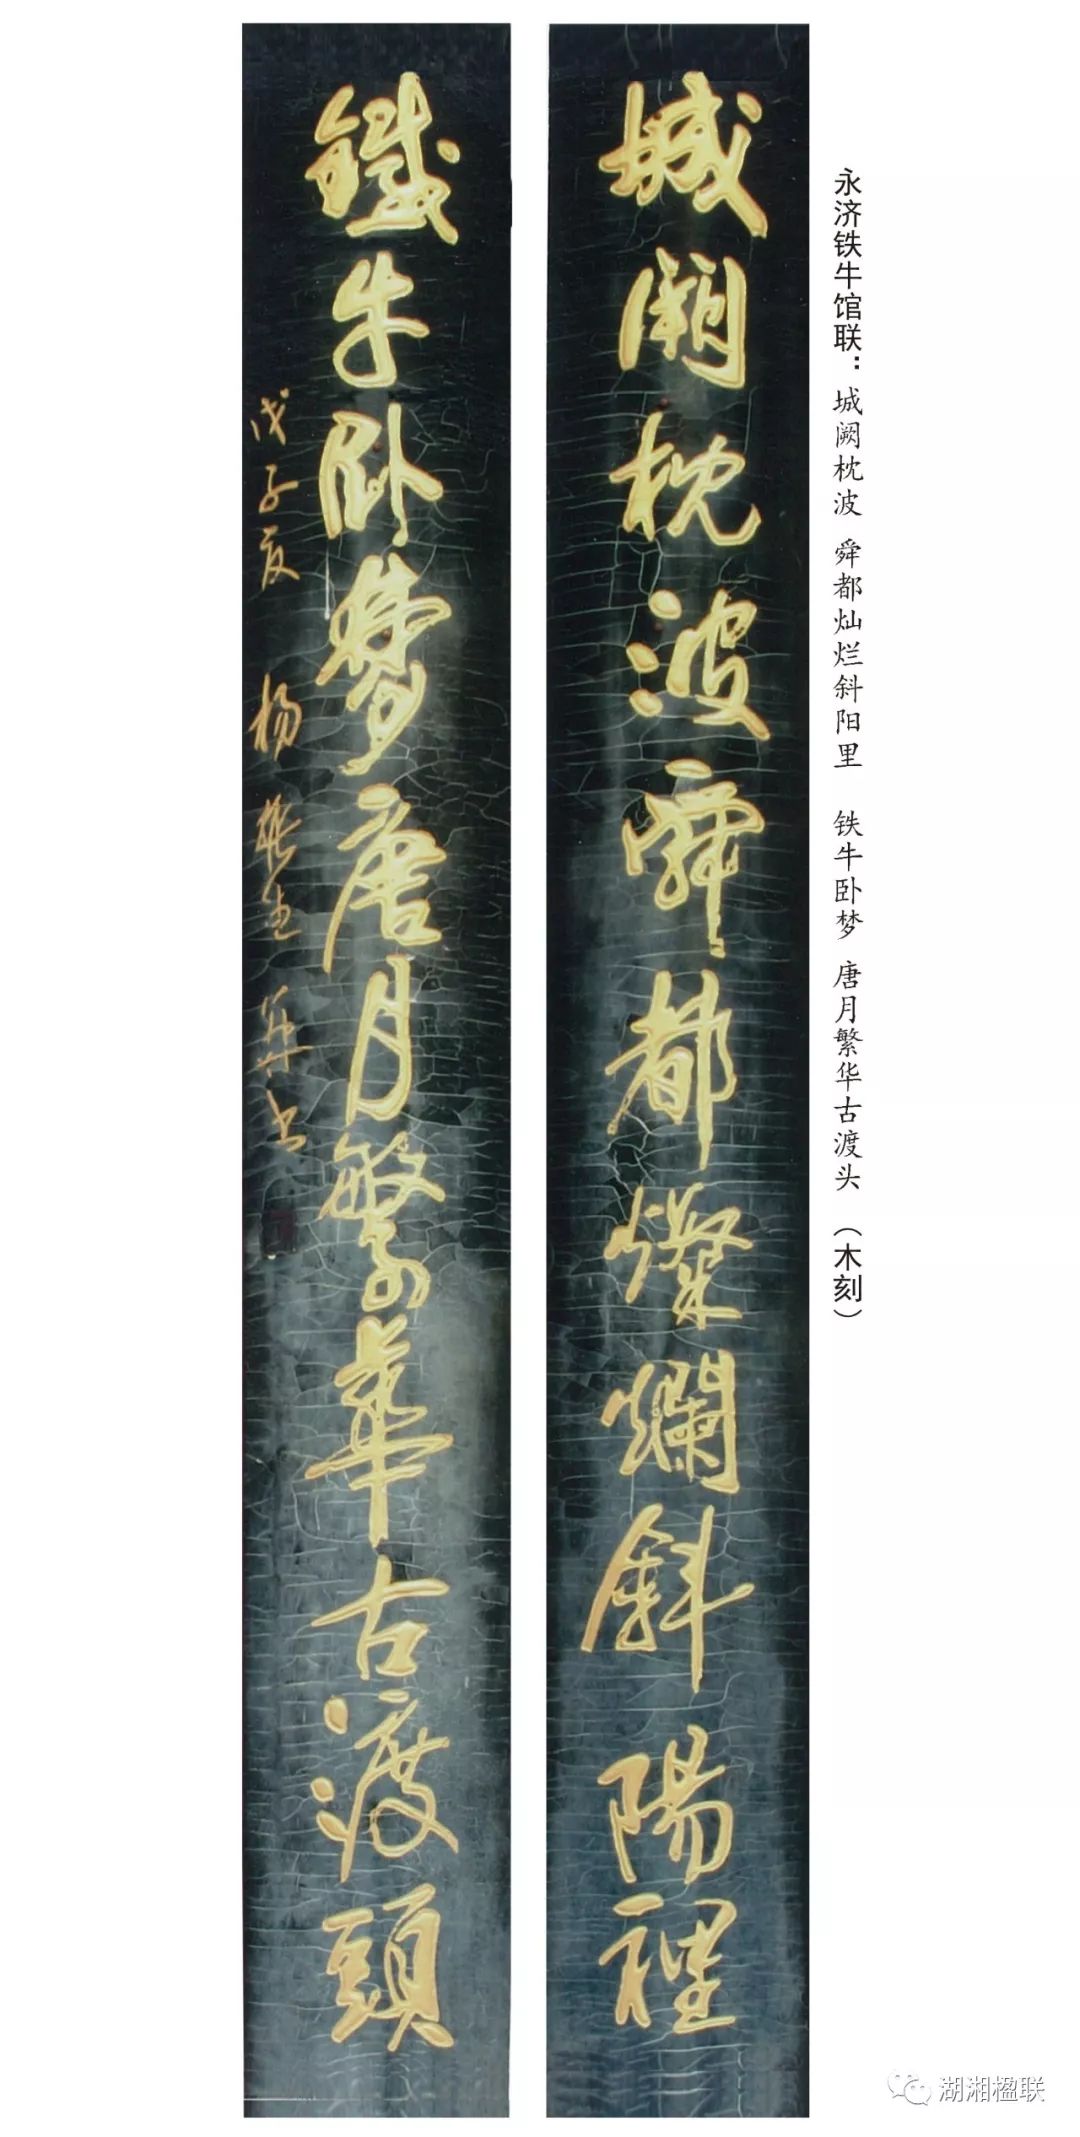 永济铁牛馆联：城阙枕波 舜都灿烂斜阳里 铁牛卧梦 唐月繁华古渡头 （木刻）
城闕枕波舜都燦爛斜陽裡
鐵牛卧夢唐月繁華古渡頭
戊子夏 杨振生 书
湖湘楹联